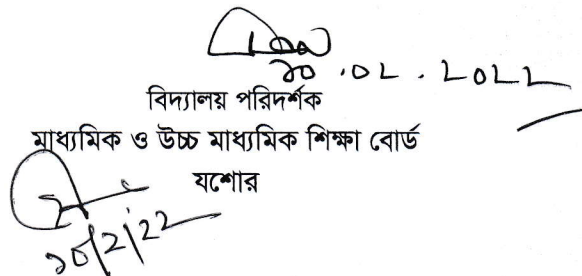 ১০.০২.২০২২
বিদ্যালয় পরিদর্শক
মাধ্যমিক ও উচ্চ মাধ্যমিক শিক্ষা বোর্ড
যশোর
১০/২/২২